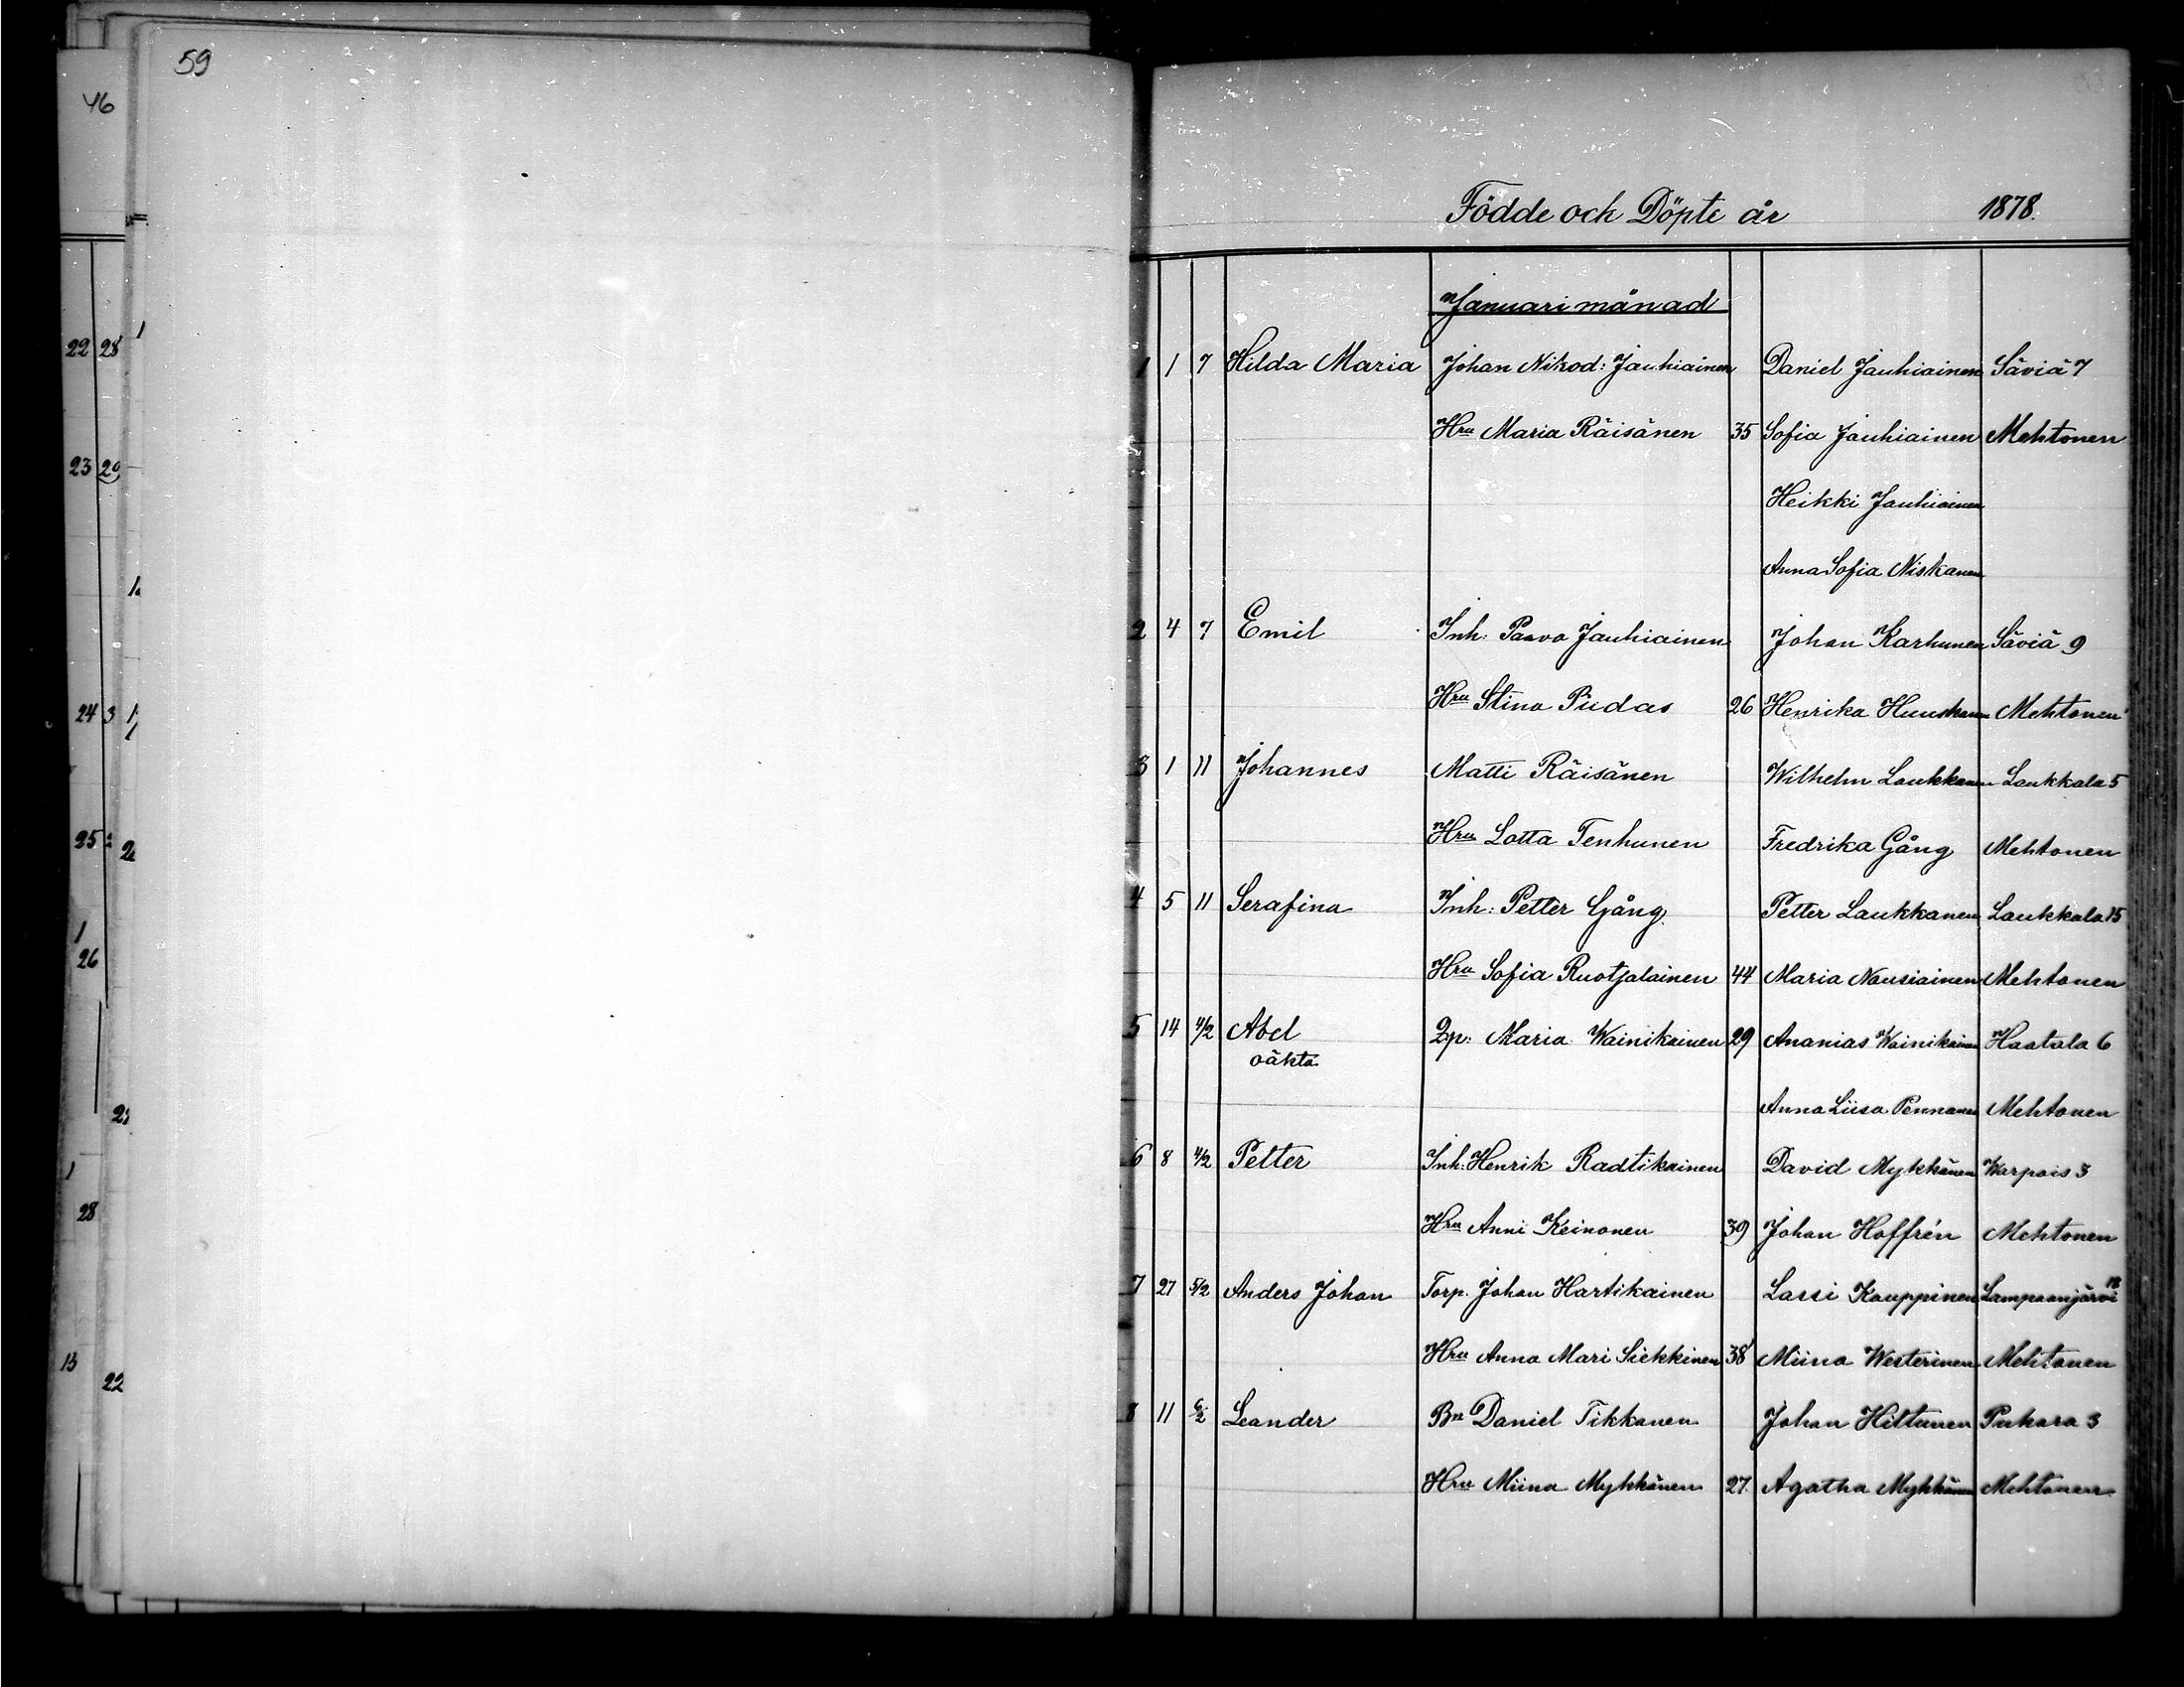 59
46
22 28
23 29
24 3
25
1
26
1
28
13
22
Födde och Döpte år 1878.
Januari månad
1 1 7 Hilda Maria Johan Nikod: Jauhiainen Daniel Jauhiainen Säviä 7
Hru Maria Räisänen 35 Sofia Jauhiainen Mehtonen
Heikki Jauhiainen
Anna Sofia Niskanen
2 4 7 Emil Inh: Paavo Jauhiainen Johan Karhunen Säviä 9
Hru Stina Pudas 26 Henrika Huuskonen Mehtonen
3 1 11 Johannes Matti Räisänen Wilhelm Laukkanen Laukkala 5
Hru Lotta Tenhunen Fredrika Gång Mehtonen
4 5 11 Serafina Inh: Petter Gång Petter Laukkanen Laukkala 15
Hru Sofia Ruotsalainen 44 Maria Nousiainen Mehtonen
5 14 4/2 Abel Qp: Maria Wainikainen 29 Ananias Wainikainen Haatala 6
oäkta
Anna Liisa Pennanen Mehtonen
6 8 4/2 Petter Inh: Henrik Radtikainen David Mykkänen Warpais 3
Hru Anni Keinonen 39 Johan Hoffrén Mehtonen
7 27 5/2 Anders Johan Torp. Johan Hartikainen Lassi Kauppinen Lampaanjärvi 18
Hru Anna Mari Siekkinen 38 Miina Westerinen Mehtonen
8 11 6/2 Leander Bn Daniel Tikkanen Johan Hiltunen Pukara 3
Hru Miina Mykkänen 27 Agatha Mykkänen Mehtonen